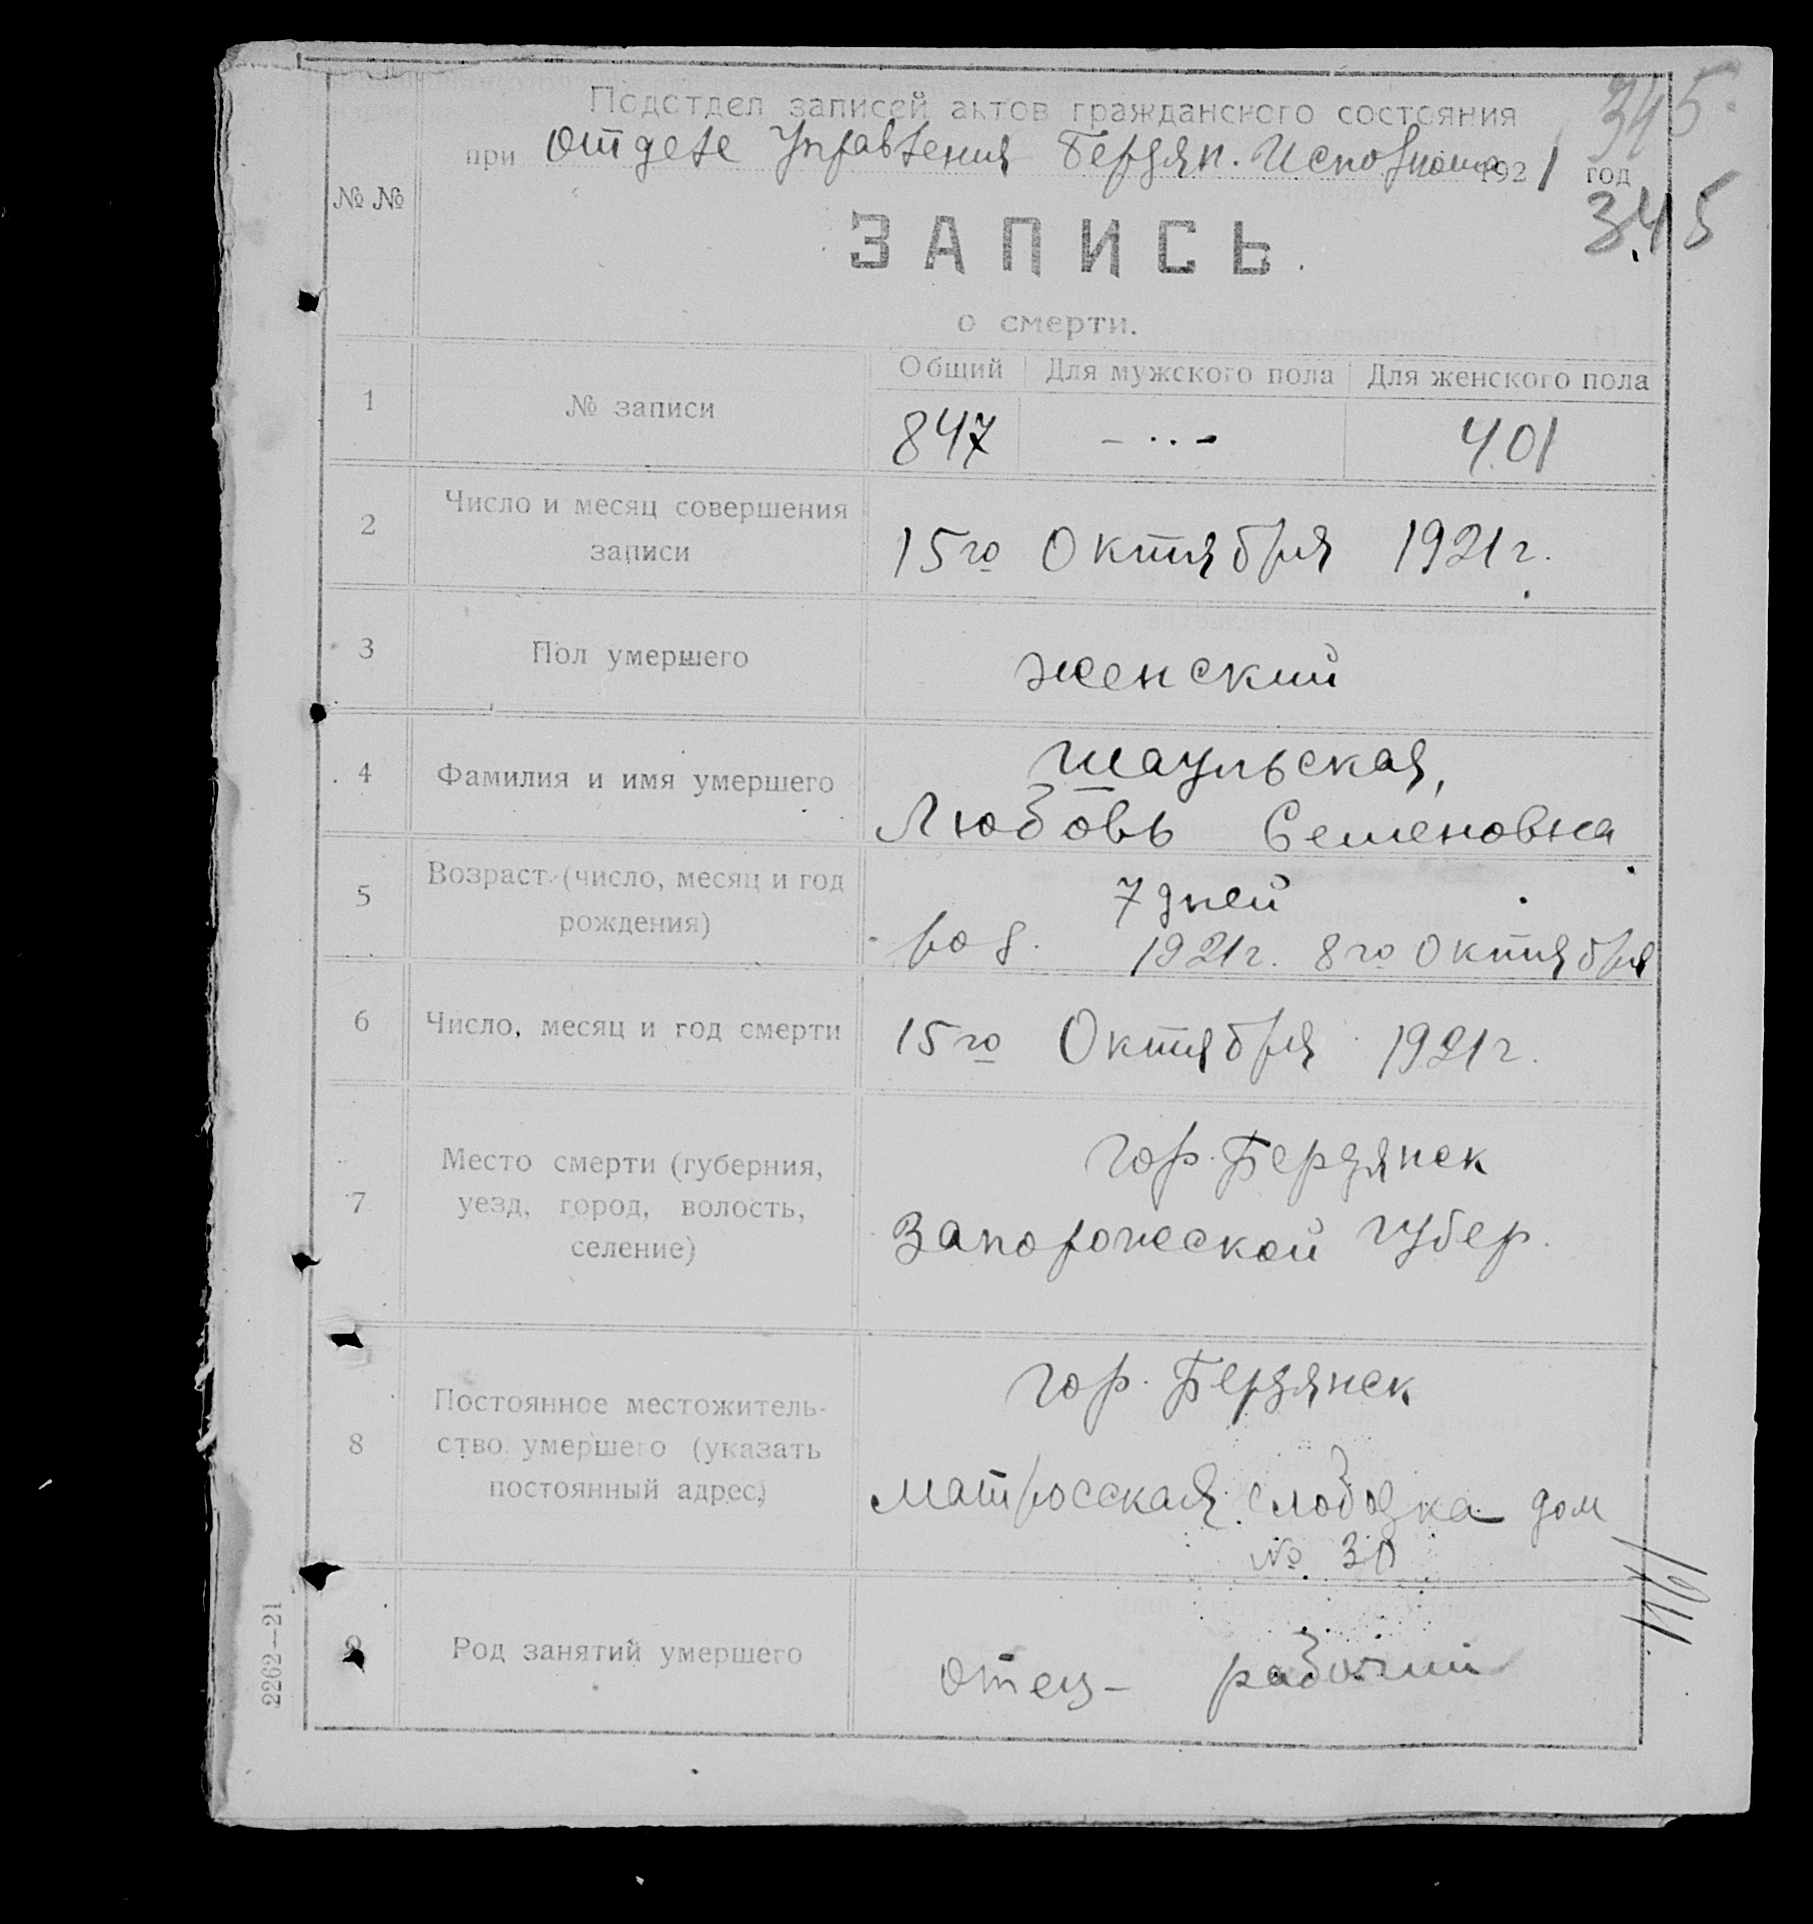 345.
Подотдел записей актов гражданского состояния
при Отделе Управления Бердян. Исполкома 1921 год
345
№ №
ЗАПИСЬ.
о смерти.
Общий Для мужского пола Для женского пола
1 № записи 847 - .. - 401
2 Число и месяц совершения
записи
15го Октября 1921 г.
3 Пол умершего женский
4 Фамилия и имя умершего
Шаульская,
Любовь Семеновна
5 Возраст (число, месяц и год
рождения)
7 дней
род. 1921 г. 8го Октября
6 Число, месяц и год смерти 15го Октября 1921 г.
7 Место смерти (губерния,
уезд, город, волость,
селение)
гор. Бердянск
Запорожской губер.
8 Постоянное местожитель-
ство умершего (указать
постоянный адрес)
гор. Бердянск
Матросская слободка дом
№ 30
9 Род занятий умершего отец - рабочий
2262—21